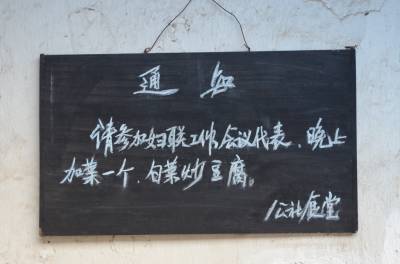 通知
请参加妇联工作会议代表、晚上
加菜一个、白菜炒豆腐。
公社食堂